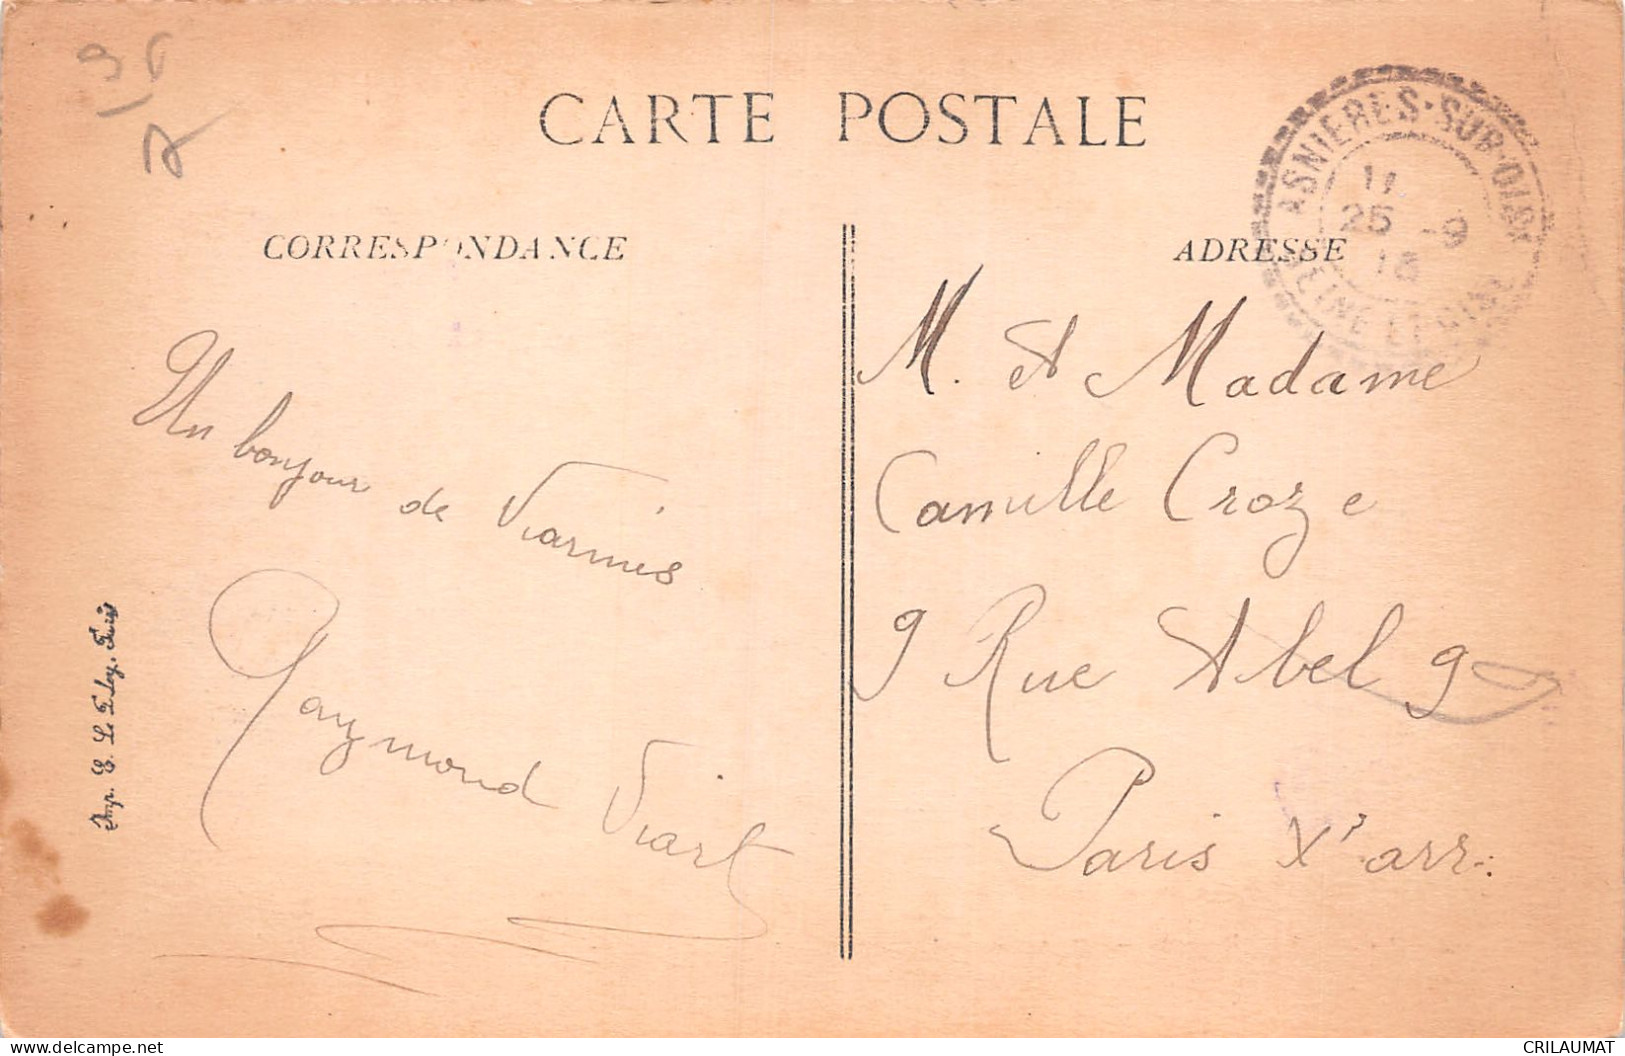 CARTE POSTALE
CORRESPONDANCE
ADRESSE
ASNIERES-SUR-OISE
11
25 -9
SEINE ET OISE
Un bonjour
de Viarmes
Raymond Viart
M. et Madame
Camille Croze
9 Rue Abel 9
Paris X' arr.
Imp. E. Le Deley, Paris
CRILAUMAT